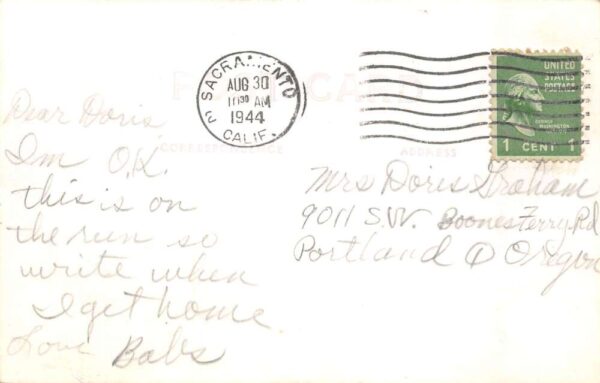 POST CARD
SACRAMENTO
AUG 30
10 30 AM
1944
2 CALIF.
UNITED
STATES
POSTAGE
GEORGE
WASHINGTON
1 CENT 1
CORRESPONDENCE
ADDRESS
Dear Doris
Im O.K.
this is on
the run so
write when
I get home
Love Babs
Mrs Doris Graham
9011 S.W. Boones Ferry Rd
Portland Oregon